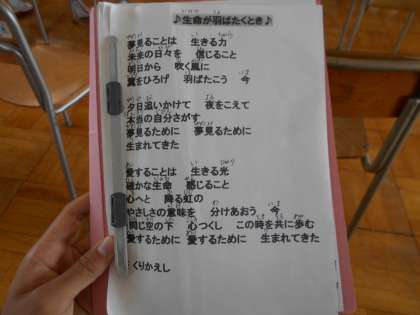 ♪生命が羽ばたくとき♪
夢見ることは 生きる力
未来の日々を 信じること
明日から 吹く風に
翼をひろげ 羽ばたこう 今
夕日追いかけて 夜をこえて
本当の自分さがす
夢見るために 夢見るために
生まれてきた
愛することは 生きる光
確かな生命 感じること
心へと 降る虹の
やさしさの意味を 分けあおう 今
同じ空の下 心つくし この時を共に歩む
愛するために 愛するために 生まれてきた
くりかえし